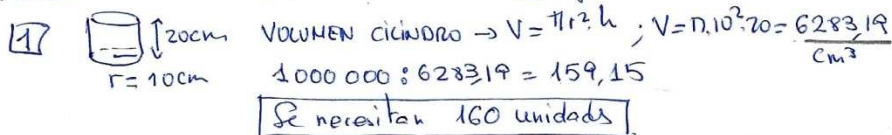 1 20cm VOLUMEN CILINDRO → V = π r². h ; V = π.10².20 = 6283,19 cm³
r = 10cm 1000 000 : 6283,19 = 159,15
Se necesitan 160 unidads